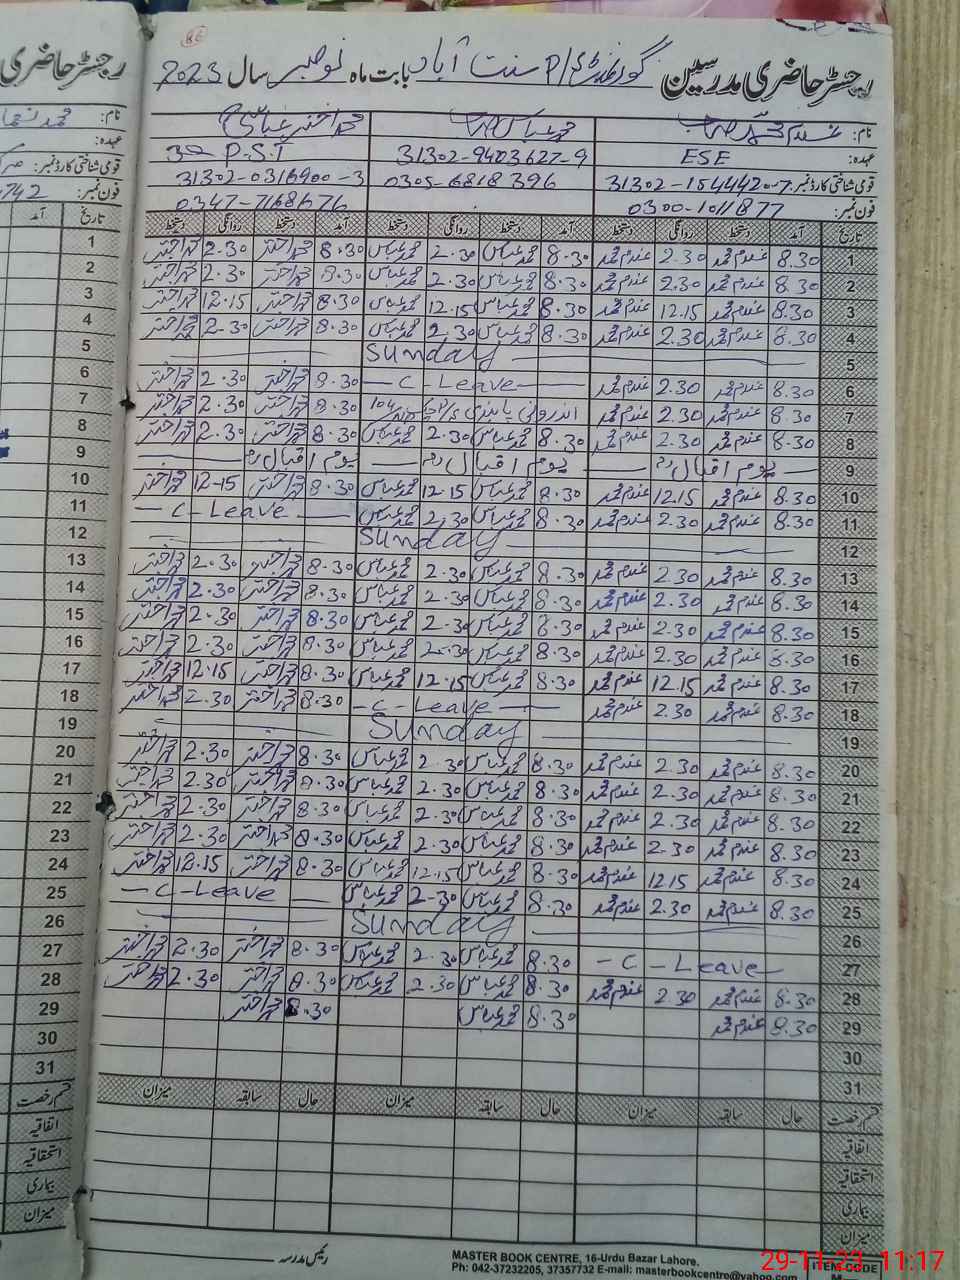 86
رجسٹر حاضری مدرسین گورنمنٹ P/S سنت آباد بابت ماہ نومبر سال 2023
نام: غلام محمد صاحب محمد عباس صاحب محمد اختر عباسی
عہدہ: ESE 31302-9403627-9 P.S.T
قومی شناختی کارڈ نمبر: 31302-1544420-7 0305-6818396 31302-0316900-3
فون نمبر: 0300-1011877 0347-7168676
تاریخ آمد دستخط روانگی دستخط آمد دستخط روانگی دستخط آمد دستخط روانگی دستخط
1 8.30 غلام محمد 2.30 غلام محمد 8.30 محمد عباس 2.30 محمد عباس 8.30 محمد اختر 2.30 محمد اختر
2 8.30 غلام محمد 2.30 غلام محمد 8.30 محمد عباس 2.30 محمد عباس 8.30 محمد اختر 2.30 محمد اختر
3 8.30 غلام محمد 12.15 غلام محمد 8.30 محمد عباس 12.15 محمد عباس 8.30 محمد اختر 12.15 محمد اختر
4 8.30 غلام محمد 2.30 غلام محمد 8.30 محمد عباس 2.30 محمد عباس 8.30 محمد اختر 2.30 محمد اختر
5 Sunday
6 8.30 غلام محمد 2.30 غلام محمد C-Leave 8.30 محمد اختر 2.30 محمد اختر
7 8.30 غلام محمد 2.30 غلام محمد P/S 8.30 محمد اختر 2.30 محمد اختر
8 8.30 غلام محمد 2.30 غلام محمد 8.30 محمد عباس 2.30 محمد عباس 8.30 محمد اختر 2.30 محمد اختر
9 یوم اقبال یوم اقبال یوم اقبال
10 8.30 غلام محمد 12.15 غلام محمد 8.30 محمد عباس 12.15 محمد عباس 8.30 محمد اختر 12-15 محمد اختر
11 8.30 غلام محمد 2.30 غلام محمد 8.30 محمد عباس 2.30 محمد عباس - C-Leave
12 Sunday
13 8.30 غلام محمد 2.30 غلام محمد 8.30 محمد عباس 2.30 محمد عباس 8.30 محمد اختر 2.30 محمد اختر
14 8.30 غلام محمد 2.30 غلام محمد 8.30 محمد عباس 2.30 محمد عباس 8.30 محمد اختر 2.30 محمد اختر
15 8.30 غلام محمد 2.30 غلام محمد 8.30 محمد عباس 2.30 محمد عباس 8.30 محمد اختر 2.30 محمد اختر
16 8.30 غلام محمد 2.30 غلام محمد 8.30 محمد عباس 2.30 محمد عباس 8.30 محمد اختر 2.30 محمد اختر
17 8.30 غلام محمد 12.15 غلام محمد 8.30 محمد عباس 12.15 محمد عباس 8.30 محمد اختر 12.15 محمد اختر
18 8.30 غلام محمد 2.30 غلام محمد - C-Leave 8.30 محمد اختر 2.30 محمد اختر
19 Sunday
20 8.30 غلام محمد 2.30 غلام محمد 8.30 محمد عباس 2.30 محمد عباس 8.30 محمد اختر 2.30 محمد اختر
21 8.30 غلام محمد 2.30 غلام محمد 8.30 محمد عباس 2.30 محمد عباس 8.30 محمد اختر 2.30 محمد اختر
22 8.30 غلام محمد 2.30 غلام محمد 8.30 محمد عباس 2.30 محمد عباس 8.30 محمد اختر 2.30 محمد اختر
23 8.30 غلام محمد 2.30 غلام محمد 8.30 محمد عباس 2.30 محمد عباس 8.30 محمد اختر 2.30 محمد اختر
24 8.30 غلام محمد 12.15 غلام محمد 8.30 محمد عباس 12.15 محمد عباس 8.30 محمد اختر 12.15 محمد اختر
25 8.30 غلام محمد 2.30 غلام محمد 8.30 محمد عباس 2.30 محمد عباس - C-Leave
26 Sunday
27 - C-Leave 8.30 محمد عباس 2.30 محمد عباس 8.30 محمد اختر 2.30 محمد اختر
28 8.30 غلام محمد 2.30 غلام محمد 8.30 محمد عباس 2.30 محمد عباس 8.30 محمد اختر 2.30 محمد اختر
29 8.30 غلام محمد 8.30 محمد عباس 8.30 محمد اختر
30
31
قسم رخصت حال سابقہ میزان حال سابقہ میزان حال سابقہ میزان
اتفاقیہ
استحقاقیہ
بیماری
میزان
رئیس مدرسہ
MASTER BOOK CENTRE, 16-Urdu Bazar Lahore.
Ph: 042-37232205, 37357732 E-mail: masterbookcentre@yahoo.com
ITEM CODE
29-11-23 11:17
رجسٹر حاضری
نام:
عہدہ:
قومی شناختی کارڈ نمبر:
فون نمبر: 742
تاریخ آمد
1
2
3
4
5
6
7
8
9
10
11
12
13
14
15
16
17
18
19
20
21
22
23
24
25
26
27
28
29
30
31
قسم رخصت
اتفاقیہ
استحقاقیہ
بیماری
میزان